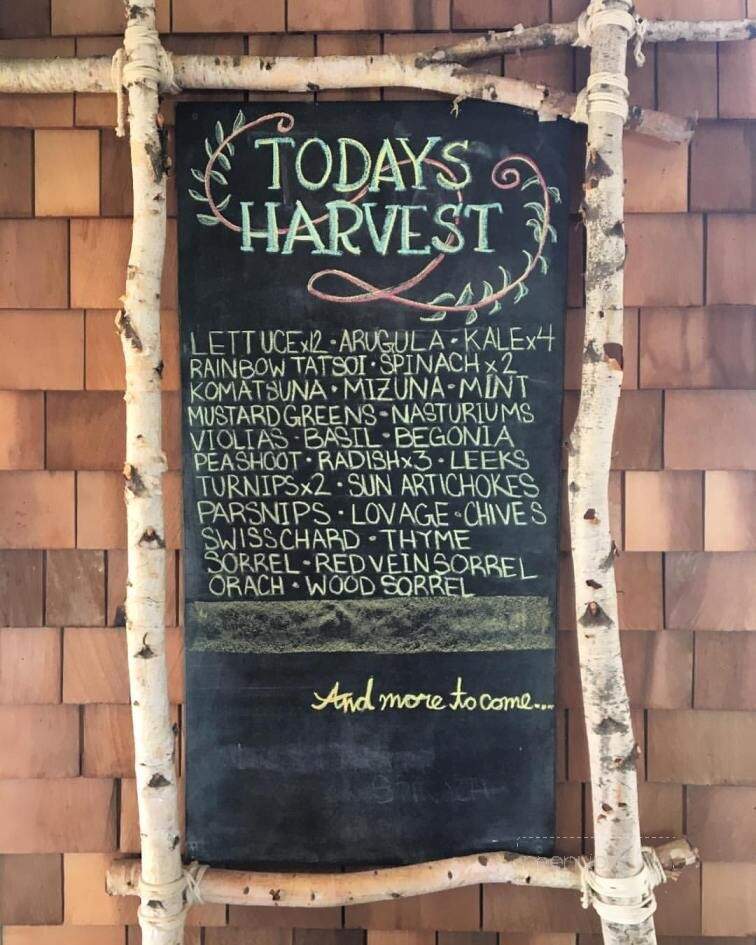 TODAYS
HARVEST
LETTUCEx12 • ARUGULA • KALEx4
RAINBOW TATSOI • SPINACH x 2
KOMATSUNA • MIZUNA • MINT
MUSTARD GREENS • NASTURIUMS
VIOLIAS • BASIL • BEGONIA
PEASHOOT • RADISHx3 • LEEKS
TURNIPSx2 • SUN ARTICHOKES
PARSNIPS • LOVAGE • CHIVES
SWISS CHARD • THYME
SORREL • RED VEIN SORREL
ORACH • WOOD SORREL
And more to come...